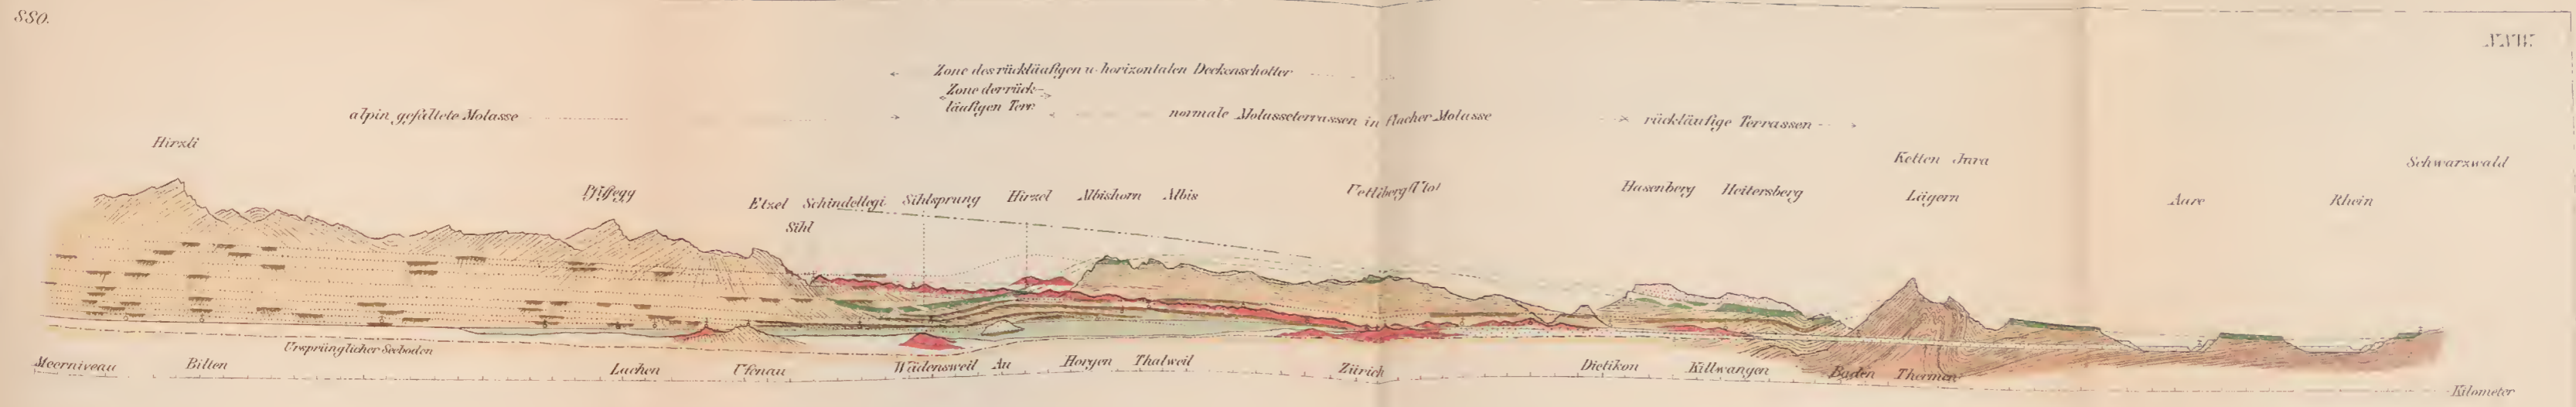 SSO.
NNW.
Zone des rückläufigen u. horizontalen Deckenschotter
Zone der rück-
läufigen Terr.
alpin gefaltete Molasse
normale Molasseterrassen in flacher Molasse
rückläufige Terrassen
Hirzli
Ketten Jura
Schwarzwald
Etzel Schindellegi Sihlsprung Hirzel Albishorn Albis
Hasenberg Heitersberg
Lägern
Aare
Rhein
Sihl
Ursprünglicher Seeboden
Meerniveau
Bilten
Lachen
Ufenau
Wädensweil
Au
Horgen
Thalweil
Zürich
Dietikon
Killwangen
Baden
Thermen
Kilometer